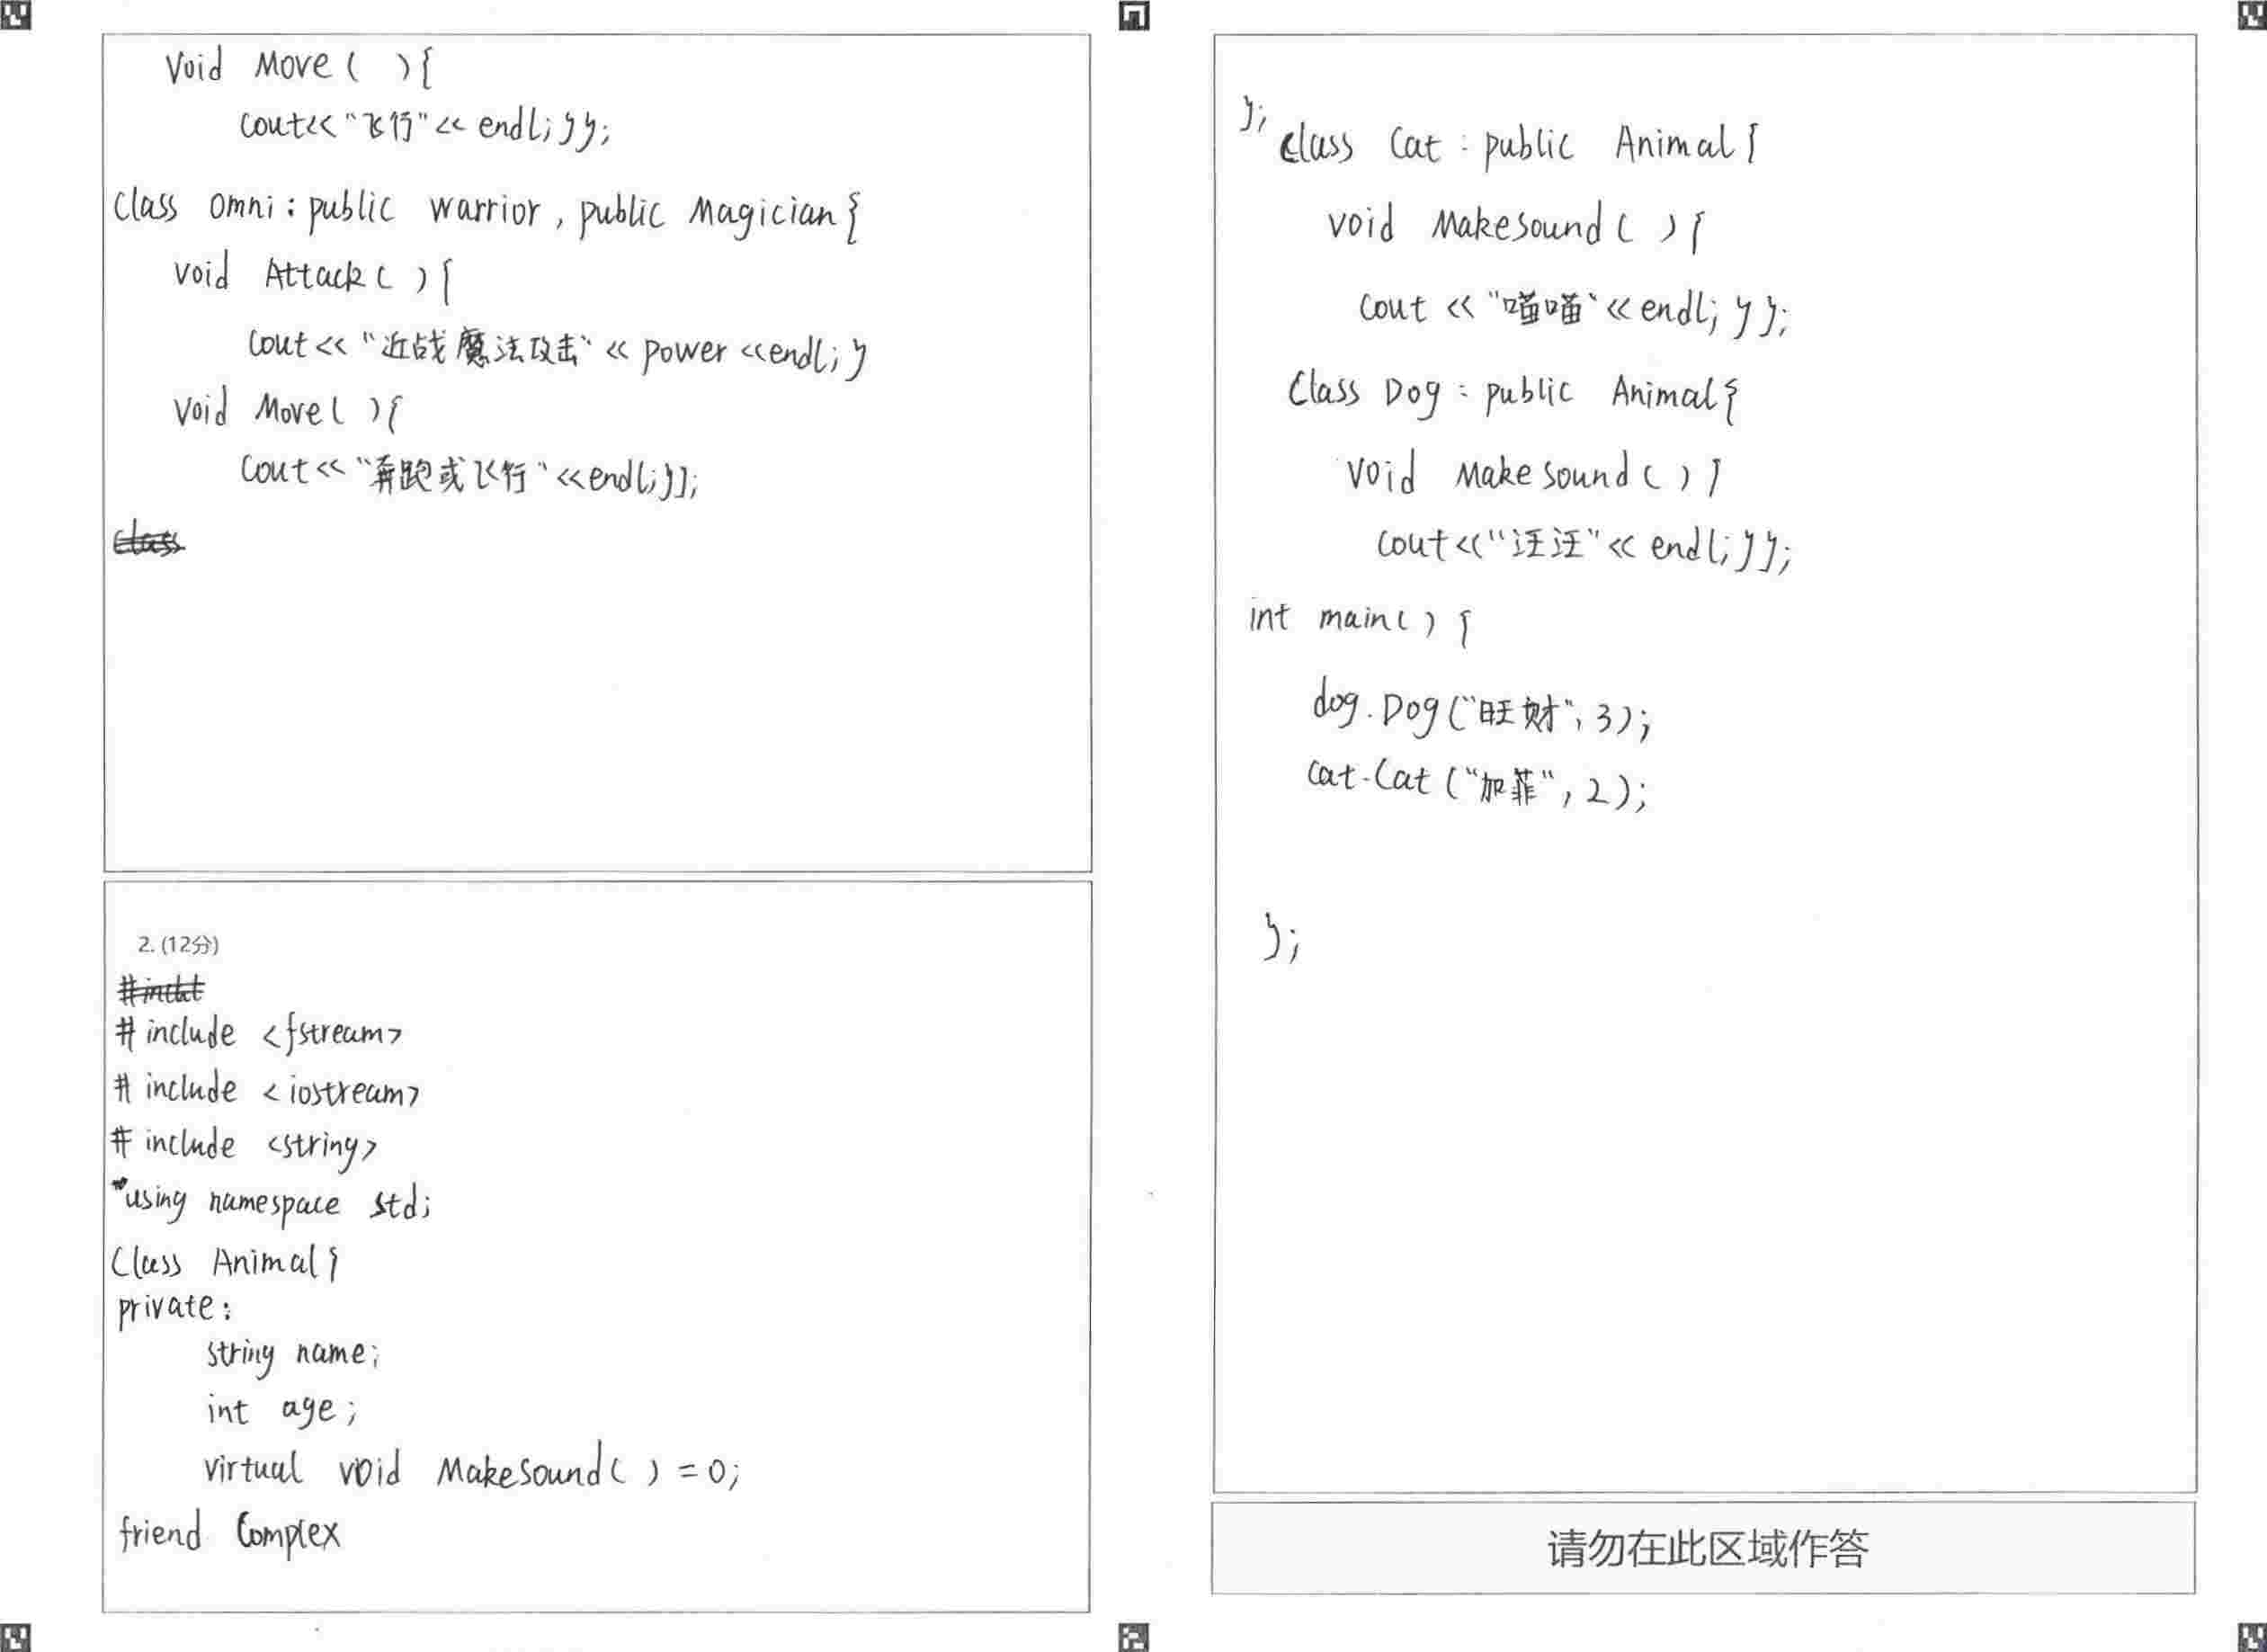 void Move( ){
cout<<"飞行"<< endl;}};
class omni:public warrior,public Magician{
void Attack( ){
cout<<"近战魔法攻击"<< power <<endl;}
void Move( ){
cout<<"奔跑或飞行"<<endl;}};
2. (12分)
# include <fstream>
# include <iostream>
# include <string>
using namespace std;
class Animal{
private:
string name;
int age;
virtual void Makesound( )=0;
friend Complex
};
class Cat:public Animal{
void Makesound( ){
cout <<"喵喵"<<endl;}};
class Dog:public Animal{
void Makesound( ){
cout<<"汪汪"<< endl;}};
int main( ) {
dog.Dog("旺财",3);
cat.Cat("加菲",2);
};
请勿在此区域作答